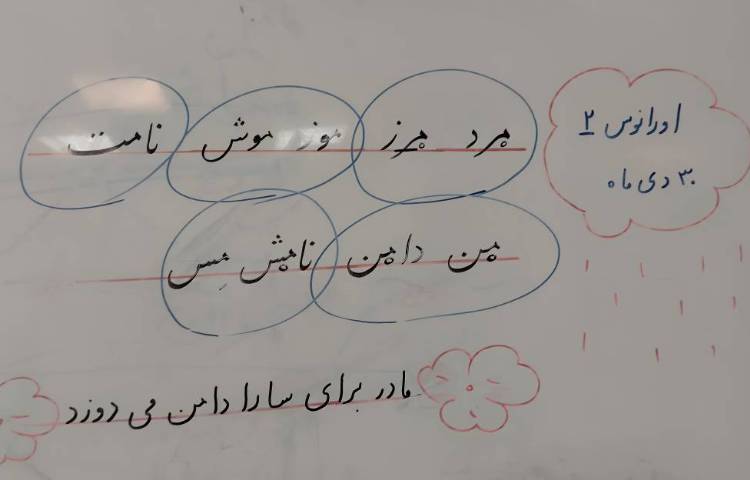 اورانوس ۲
۳۰ دی ماه
مرد مرز موز موش نامت
من دامن نامش مِس
مادر برای سارا دامن می دوزد